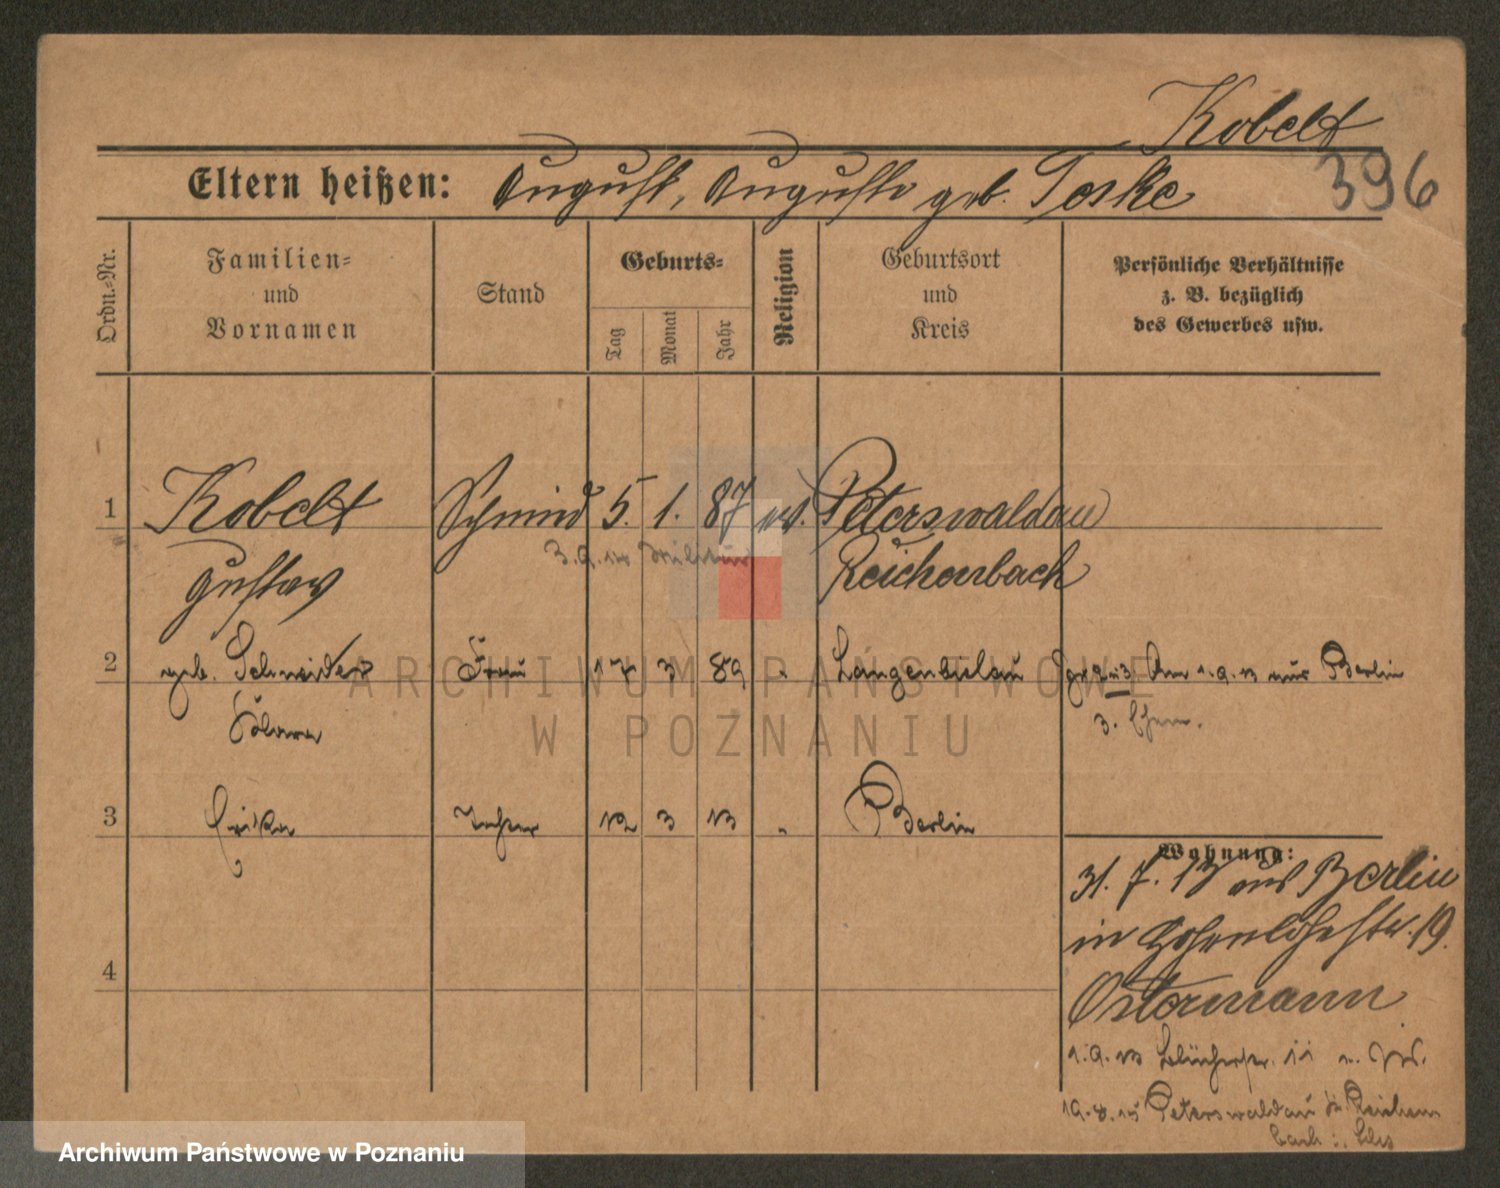 Kobelt
396
Eltern heißen: August, Auguste geb. Teske
Ordn.-Nr.
Familien-
und
Vornamen
Stand
Geburts-
Tag
Monat
Jahr
Religion
Geburtsort
und
Kreis
Persönliche Verhältnisse
z. B. bezüglich
des Gewerbes usw.
1 Kobelt Schmied 5. 1. 87 ev. Peterswaldau
Gustav Reichenbach
3.9.
2 geb. Schneider Frau 17 3 89 " Langenbielau 2 u 3 1.9.13 aus Berlin
3. Ehem.
3 Erika Tochter 12 3 13 " Berlin
4
Wohnung:
31. 7. 13 aus Berlin
in Hohenlohestr. 19.
Ostermann
1.9.13 Blücherstr. 11
19.8.15 Peterswaldau Kr. Reichen
bach i. Schles
ARCHIWUM PAŃSTWOWE
W POZNANIU
Archiwum Państwowe w Poznaniu